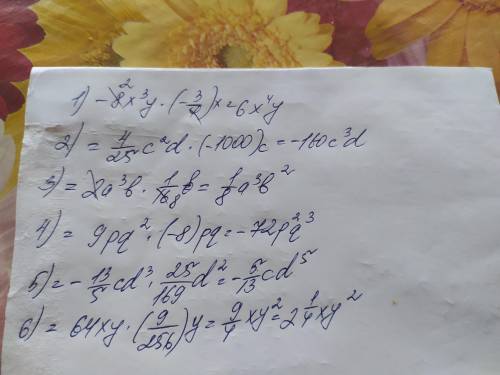 1) -8²x³y · (-3/4)x = 6x⁴y
2) = 4/25 c²d · (-1000)c = -160c³d
3) = 2a³b · 1/16 8 b = 1/8 a³b²
4) = 9pq² · (-8)pq = -72p²q³
5) = -13/5 cd³ · 25/169 d² = -5/13 cd⁵
6) = 64xy · (9/256)y = 9/4 xy² = 2 1/4 xy²